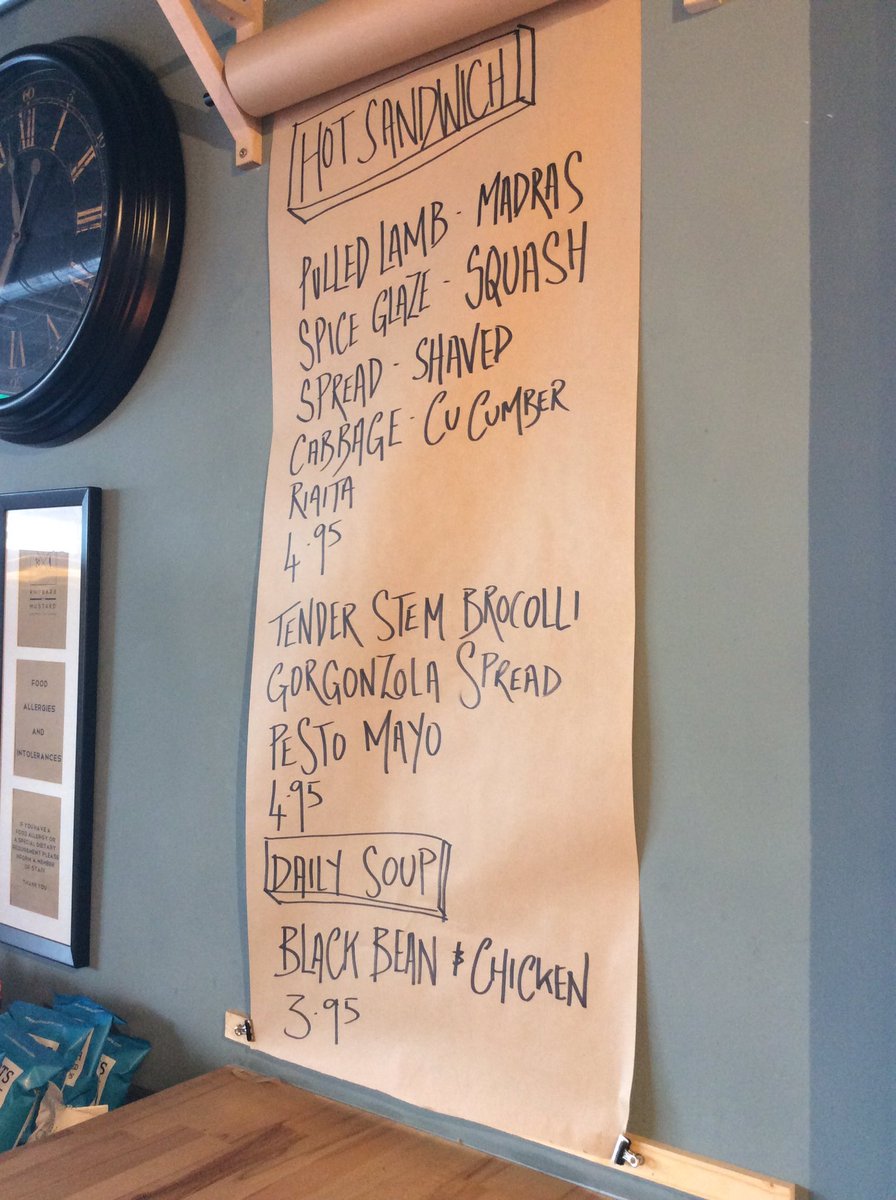 HOT SANDWICH
PULLED LAMB - MADRAS
SPICE GLAZE - SQUASH
SPREAD - SHAVED
CABBAGE - CUCUMBER
RIAITA
4.95
TENDER STEM BROCOLLI
GORGONZOLA SPREAD
PESTO MAYO
4.95
DAILY SOUP
BLACK BEAN & CHICKEN
3.95
60
MUSTARD
FOOD
ALLERGIES
AND
INTOLERANCES
IF YOU HAVE A
FOOD ALLERGY OR
A SPECIAL DIETARY
REQUIREMENT PLEASE
INFORM A MEMBER
OF STAFF
THANK YOU